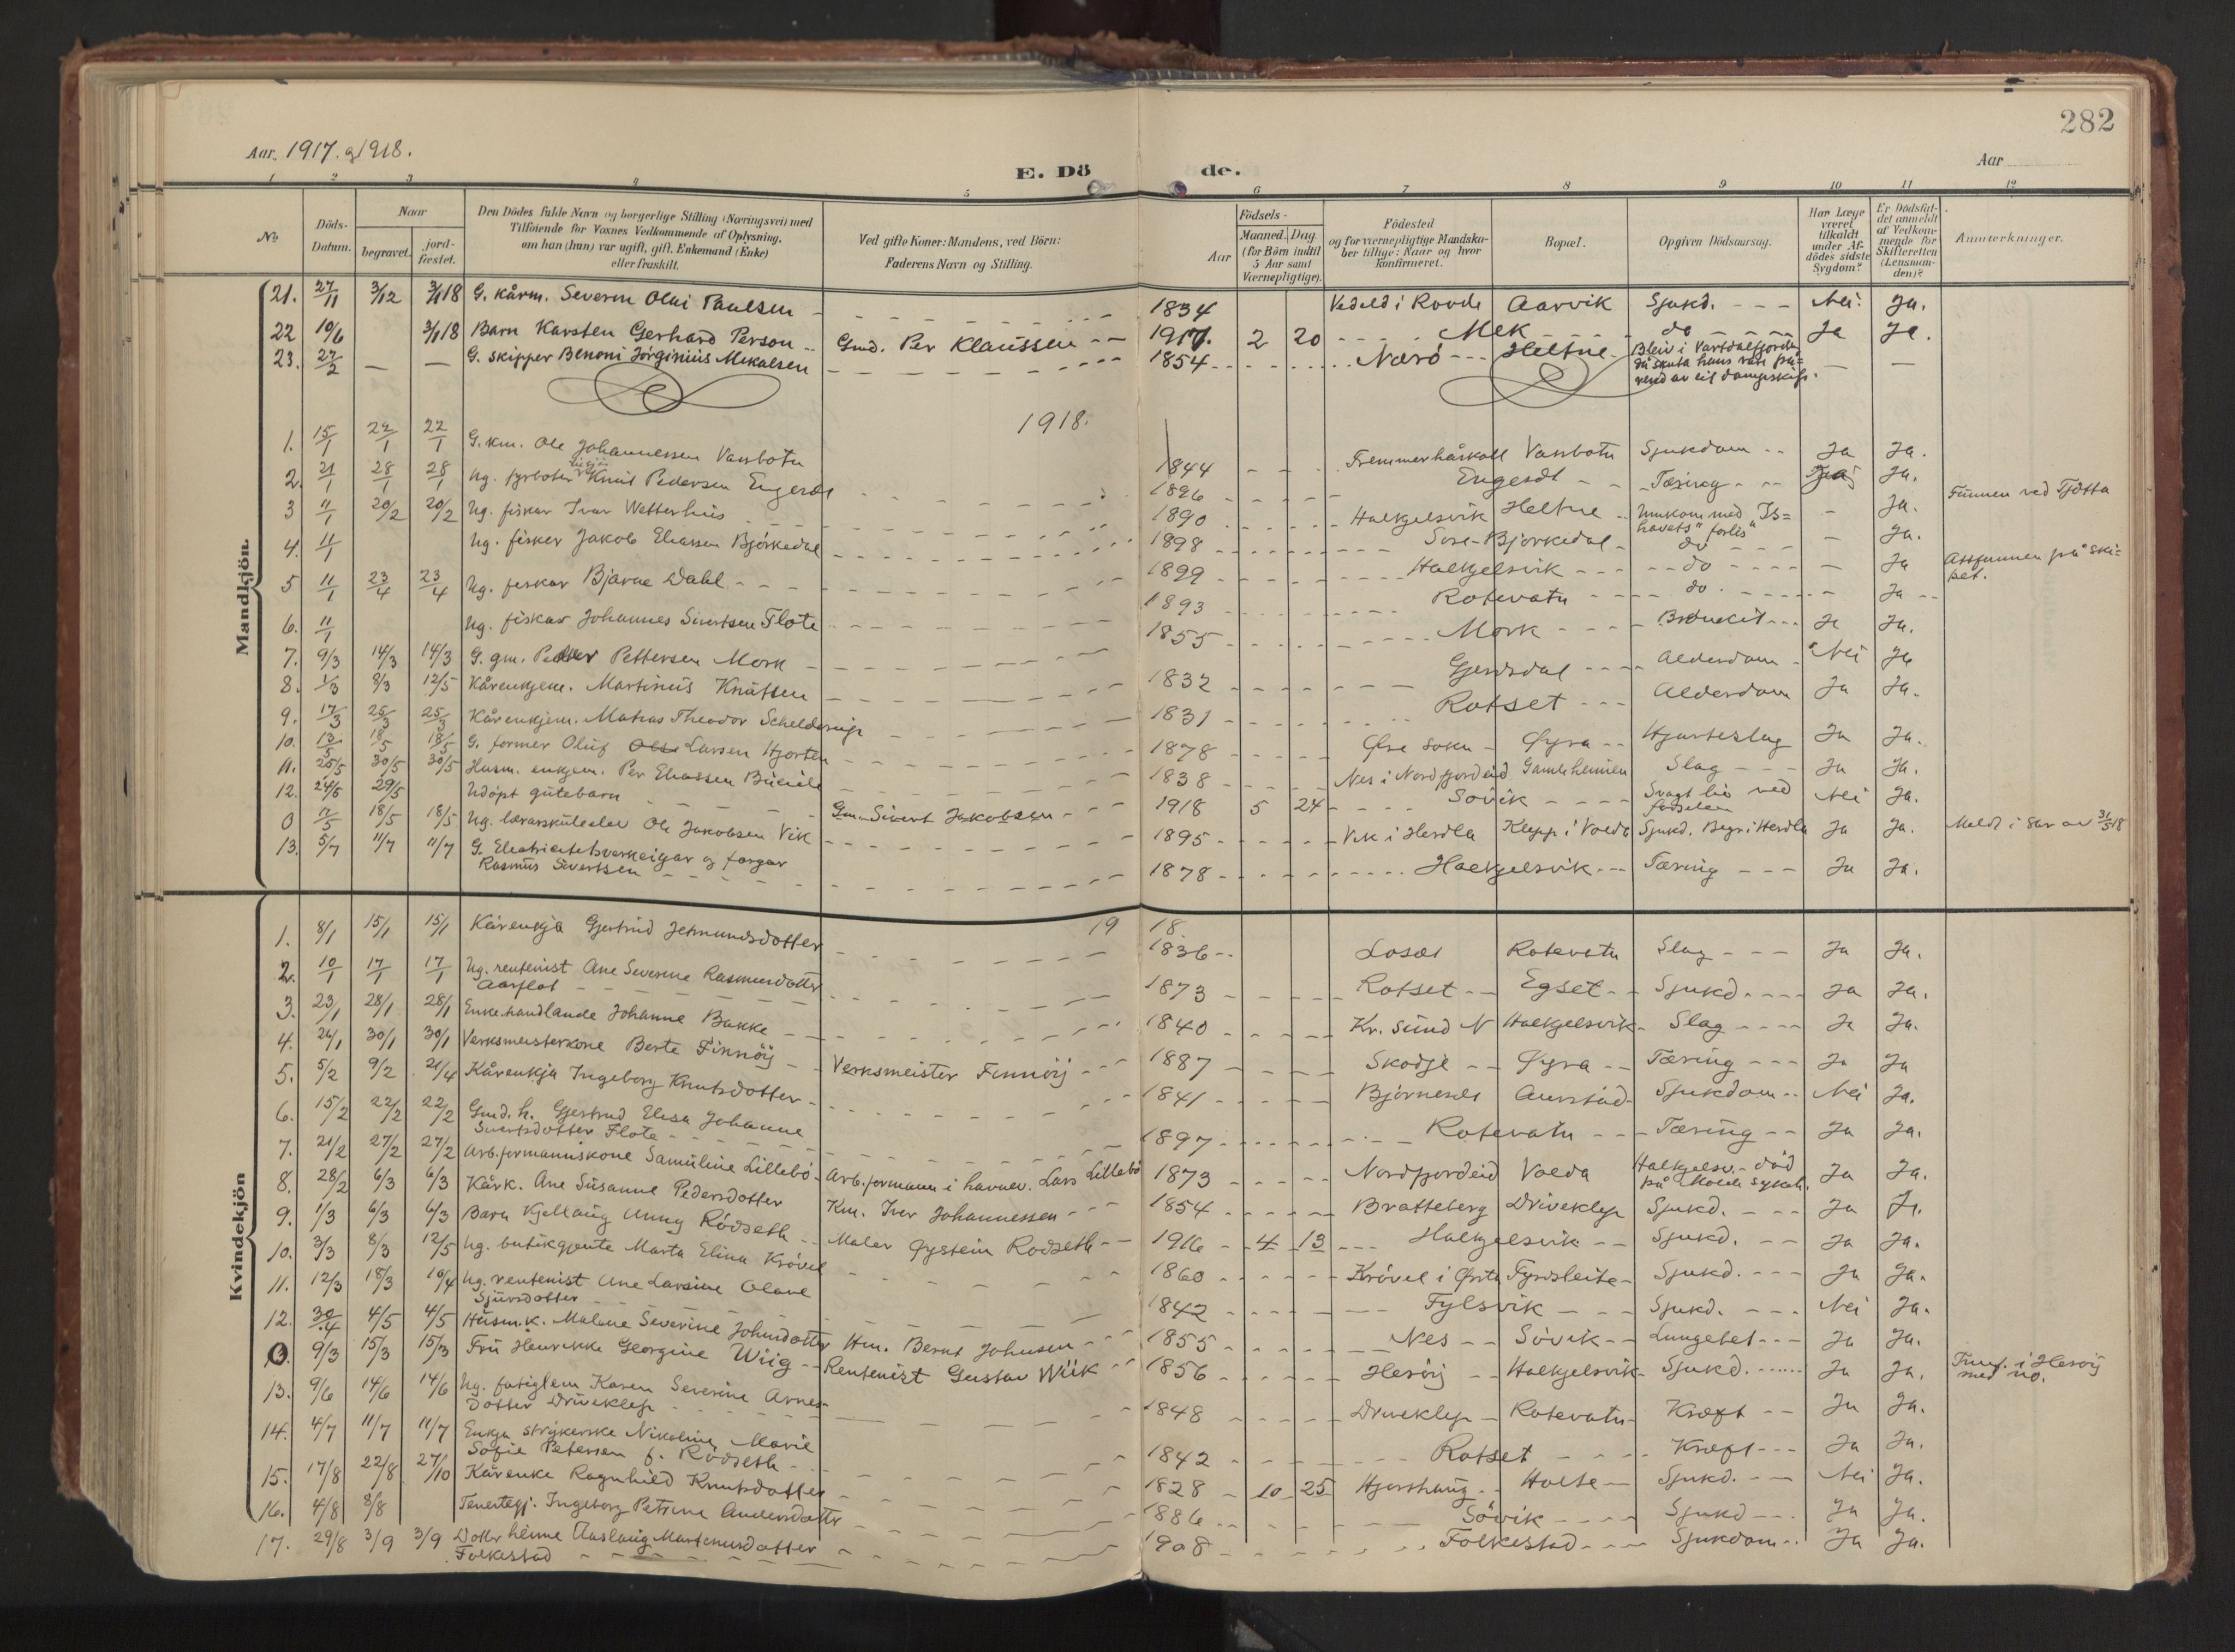 282
Aar 1917. og 1918.
Aar
E. Döde.
1 2 3 4 5 6 7 8 9 10 11 12
No
Döds-Datum.
Naar
begravet.
jordfæstet.
Den Dödes fulde Navn og borgerlige Stilling (Næringsvei) med
Tilföiende for Voxnes Vedkommende af Oplysning,
om han (hun) var ugift, gift, Enkemand (Enke)
eller fraskilt.
Ved gifte Koner: Mandens, ved Börn:
Faderens Navn og Stilling.
Födsels-
Aar
Maaned. Dag
(for Börn indtil
5 Aar samt
Værnepligtige).
Födested
og for værnepligtige Mandskaber tillige: Naar og hvor
konfirmeret.
Bopæl.
Opgiven Dödsaarsag.
Har Læge
været
tilkaldt
under Afdödes sidste
Sygdom?
Er Dödsfaldet anmeldt
af Vedkommende for
Skifteretten
(Lensmanden)?
Anmærkninger.
Mandkjön.
21. 27/11 3/12 3/1 18 G. kårm. Severin Olai Paulsen 1834 Vedeld i Rovde Aarvik Sjukd. Nei Ja.
22 10/6 3/1 18 Barn Karsten Gerhard Person Gmd. Per Klaussen 1917. 2 20 Mek do Ja Ja.
23. 27/2 — — G. skipper Benoni Jörginius Mekalsen 1854 Nærö Heltne Bleiv i Vartdalsfjorden
då skuta hans vart pårend av eit dampskip. — —
1918.
1. 15/1 22/1 22/1 G. km. Ole Johannessen Vassbotn 1844 Fremmerhåskoll Vassbotn Sjukdom Ja Ja.
2. 21/1 28/1 28/1 Ug. fyrboter Knut Pedersen Engeset 1896 Engeset Tæring Ja.
3 11/1 20/2 20/2 Ug. fiskar Ivar Wetterhus 1890 Halkjelsvik Heltne Umkom med "Ishavets" forlis - Ja. Funnen ved Tjötta
4. 11/1 Ug. fisker Jakob Eliassen Björkedal 1898 Sore-Bjorkedal do — Ja.
5 11/1 23/4 23/4 Ug. fiskar Bjarne Dahl 1899 Halkjelsvik do — Ja Attfunnen på skipet.
6. 11/1 Ug. fiskar Johannes Sivertsen Flote 1893 Rotevatn do Ja
7. 9/3 14/3 14/3 G. gm. Petter Pettersen Mork 1855 Mork Bronkit Ja Ja.
8. 1/3 8/3 12/5 Kårenkjem. Martinus Knutsen 1832 Gjerdsdal Alderdom Nei Ja
9. 17/3 25/3 25/3 Kårenkjem. Matias Theodor Schelderup 1831 Rotset Alderdom Ja Ja.
10. 13/5 18/5 18/5 G. former Oluf Larsen Hjorten 1878 Øyra Hjarteslag Ja Ja.
11. 25/5 30/5 30/5 Husm. enkjem. Per Eliassen 1838 Nes i Nordfjordeid Gamleheimen Slag Ja Ja.
12. 24/5 29/5 Udöpt gutebarn Gm. Sivert Jakobsen 1918 5 24 Sövik Svagt liv ved
fødselen Nei Ja.
0 18/5 18/5 Ug. lærarskuleelev Ole Jakobsen Vik 1895 Vik i Herdla Klepp i Volda Sjukd. Begr. i Herdla Ja Ja.
13. 5/7 11/7 11/7 G. Electricitetsverkeigar og fargar
Rasmus Sivertsen 1878 Halkjelsvik Tæring Ja Ja.
Kvindekjön
1918.
1. 8/1 15/1 15/1 Kårenkja Gjertrud Jetmundsdotter 1836 Loset Rotevatn Slag Ja Ja.
2. 10/1 17/1 17/1 Ug. rentenist Ane Severine Rasmusdotter
Aarflot 1873 Rotset Egset Sjukd. Ja Ja.
3. 23/1 28/1 28/1 Enke handlande Johanne Bakke 1840 Kr. sund N Halkjelsvik Slag Ja Ja.
4. 24/1 30/1 30/1 Verksmeisterkone Berte Finnöy Verksmeister Finnöy 1887 Skodje Øyra Tæring Ja Ja
5. 5/2 9/2 21/4 Kårenkja Ingeborg Knutsdotter 1841 Björneset Aurstad Sjukdom Nei Ja.
6. 15/2 22/2 22/2 Gmd. h. Gjertrud Elisa Johanne
Sivertsdotter Flote 1897 Rotevatn Tæring Ja Ja.
7. 21/2 27/2 27/2 Arb.formannskone Samuline Lillebö Arb.formann i havnev. Lars Lillebö 1873 Nordfjordeid Volda Halkjelsv. - död
på Molde sykeh. Ja Ja.
8. 28/2 6/3 6/3 Kårk. Ane Susanne Pedersdotter Km. Iver Johannessen 1854 Bratteberg Driveklep Sjukd. Ja Ja.
9. 1/3 6/3 6/3 Barn Kjellaug Unny Rödseth Maler Øystein Rodseth 1916 4 13 Halkjelsvik Sjukd. Ja Ja.
10. 3/3 8/3 12/5 Ug. butikgjente Marta Elina Krövel 1860 Krövel i Ørsta Fyrdsleite Sjukd. Ja Ja.
11. 12/3 18/3 10/4 Ug. rentenist Ane Larsine Olave
Sjursdotter 1842 Fylsvik Sjukd. Nei Ja.
12. 30/4 4/5 4/5 Husm.k. Malene Severine Johnsdotter Hm. Bernt Johnsen 1855 Nes Sövik Lungebet. Ja Ja.
0. 9/3 15/3 15/3 Fru Henrikke Georgine Wiig Rentenist Gustav Wiik 1856 Heröy Halkjelsvik Sjukd. Ja Ja.
13. 9/6 14/6 14/6 Ug. fatiglem Karen Severine Arnesdotter Driveklep 1848 Driveklep Rotevatn Kræft Ja Ja.
14. 4/7 11/7 11/7 Enkja strykerske Nikoline Marie
Sofie Petersen f. Rödseth 1842 Rotset Kræft Ja Ja.
15. 17/8 22/8 27/10 Kårenke Ragnhild Knutsdotter 1828 10 25 Hjorthaug Holte Sjukd. Nei Ja.
16. 4/8 8/8 Tenestegj. Ingeborg Petrine Andersdotter 1886 Sövik Sjukd Ja Ja.
17. 29/8 3/9 3/9 Dotter hennes Aaslaug Martinusdotter
Folkestad 1908 Folkestad Sjukdom Ja Ja.